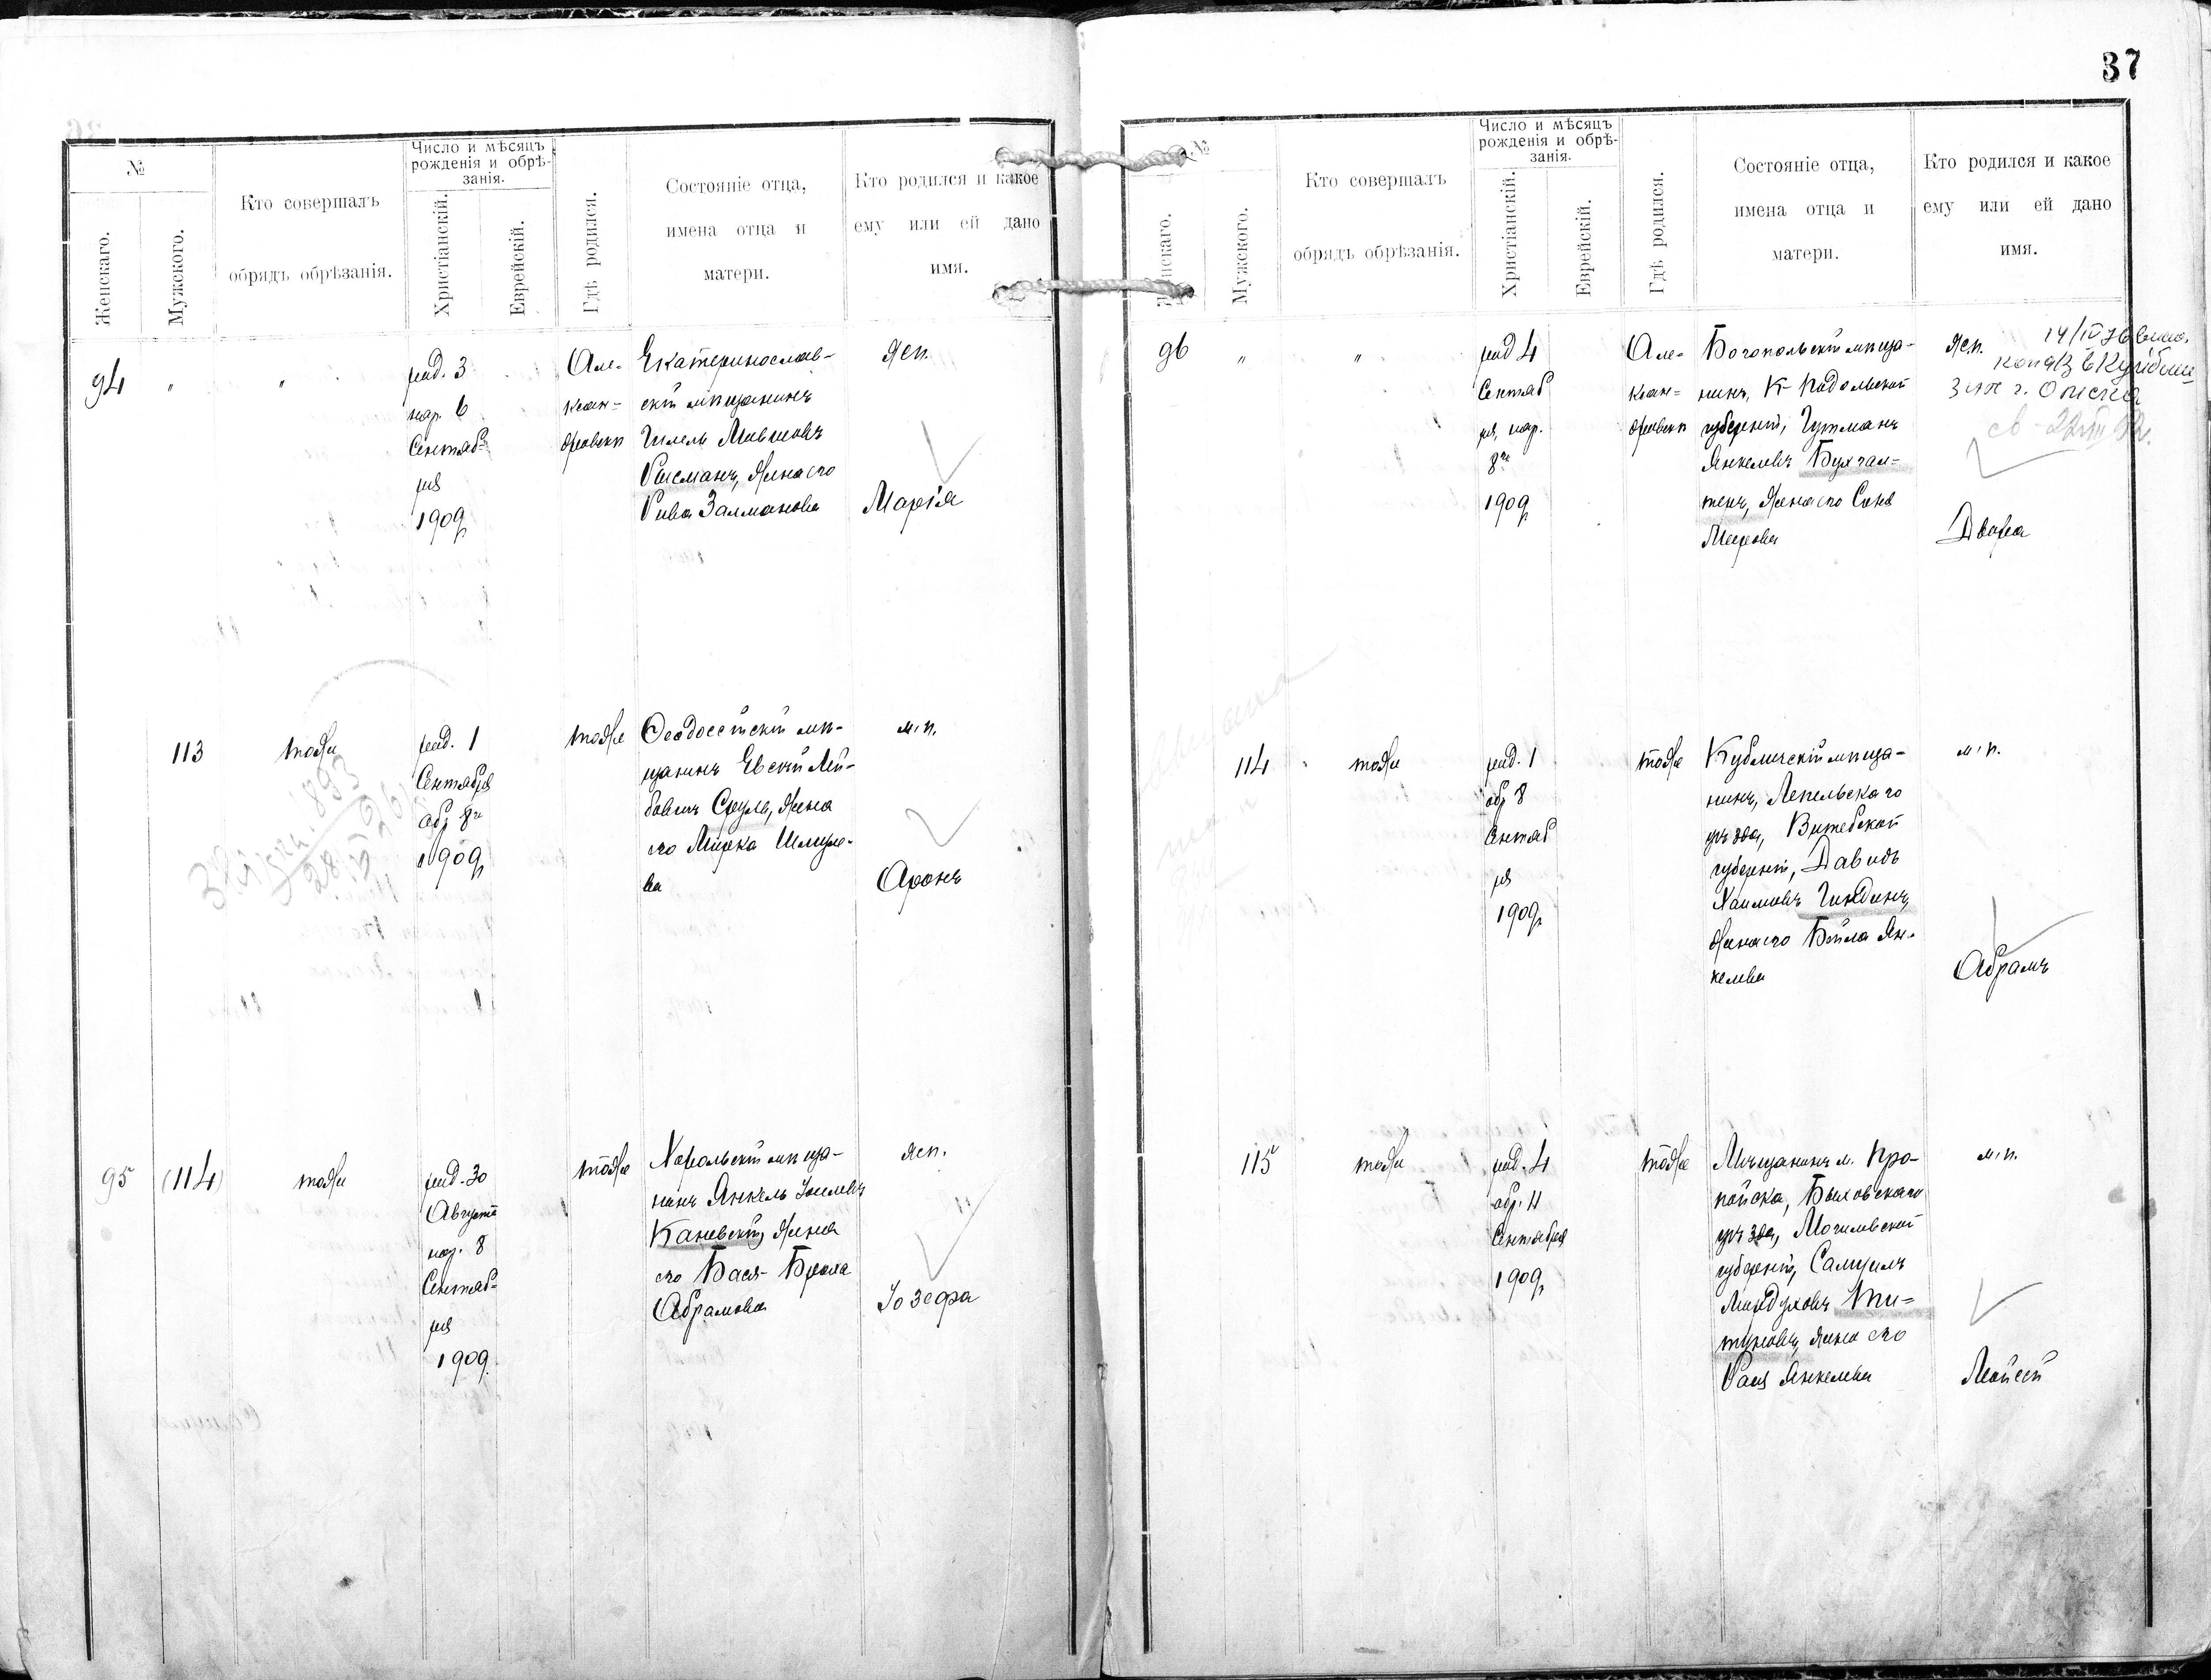 №
Женскаго.
Мужского.
Кто совершалъ
обрядъ обрѣзанія.
Число и мѣсяцъ
рожденія и обрѣ-
занія.
Христіанскій.
Еврейскій.
Гдѣ родился.
Состояніе отца,
имена отца и
матери.
Кто родился и какое
ему или ей дано
имя.
94
"
"
род. 3
нар. 6
Сентяб-
ря
1909
Але-
ксан-
дровск
Екатеринослав-
скій мѣщанинъ
Гилель
Рысманъ, жена его
Рива Залманова
жен.
Марія
113
тоже
род. 1
Сентября
обр. 8го
1909
тоже
Ѳеодосійскій мѣ-
щанинъ Евсей Лей-
бовичъ Сруль, жена
его Мирка Шмуле-
ва
м. п.
Аронъ
95
(114)
тоже
род. 30
Августа
нар. 8
Сентяб-
ря
1909
тоже
Хорольскій мѣща-
нинъ Янкель
Каневскій, жена
его Бася-Броха
Абрамова
жен.
Іозефа
37
№
Женскаго.
Мужского.
Кто совершалъ
обрядъ обрѣзанія.
Число и мѣсяцъ
рожденія и обрѣ-
занія.
Христіанскій.
Еврейскій.
Гдѣ родился.
Состояніе отца,
имена отца и
матери.
Кто родился и какое
ему или ей дано
имя.
96
"
"
род 4
Сентяб
ря, нар.
8го
1909
Але-
ксан-
дровск
Богопольскій мѣща-
нинъ, К-Подольской
губерніи, Гутманъ
Янкелевъ Бухгал-
теръ, жена его Соня
Меерова
жен.
14/IV 36
копія в Куйбыш
Двойра
114
тоже
род. 1
обр 8
Сентяб
ря
1909
тоже
Кубличскій мѣща-
нинъ, Лепельскаго
уѣзда, Витебской
губерніи, Давидъ
Хаимовъ Гиндинъ,
жена его Бейла Ян-
келева
м. п.
Абрамъ
115
тоже
род. 4
обр. 11
Сентября
1909
тоже
Мѣщанинъ м. Про-
пойска, Быховскаго
уѣзда, Могилевской
губерніи, Самуилъ
Мордуховъ
жена его
Рася Янкелева
м. п.
Мойсей